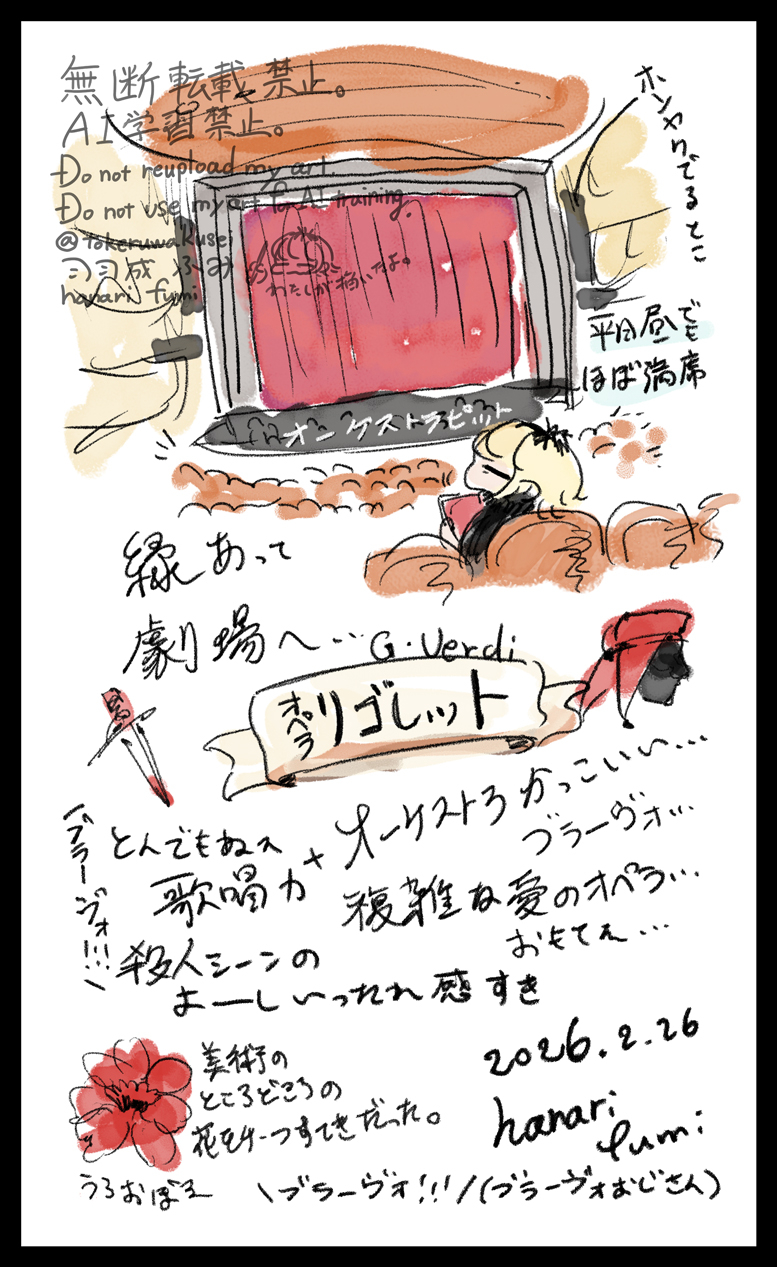 無断転載禁止。
AI学習禁止。
Do not reupload my art.
Do not use my art for AI training.
@takeruwakusei
hanari fumi
わたしが描いたよ。
ホンヤリでるとこ
平日昼でも
ほぼ満席
オーケストラピット
縁あって
劇場へ…
G・Verdi
オペラ
リゴレット
\ブラーヴォ!!!/
とんでもねえ
歌唱力
+
オーケストラかっこいい…
ブラーヴォ…
複雑な愛のオペラ…
おもてえ…
殺人シーンの
よーしいったれ感すき
美術の
ところどころの
花モチーフすてきだった。
うろおぼえ
2026.2.26
hanari
fumi
\ブラーヴォ!!!/(ブラーヴォおじさん)